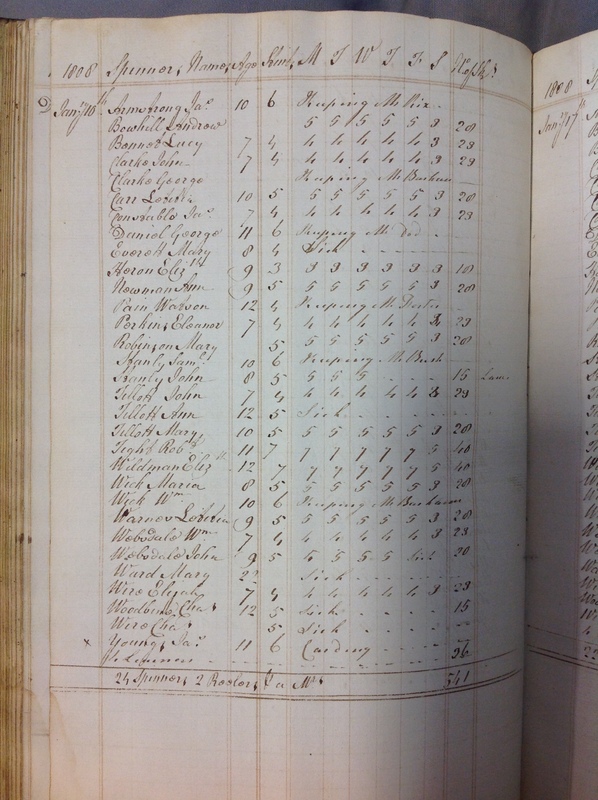 1808 Spinners Names Age Stint M T W T F S No Sks
Jany 10th Armstrong Jas 10 6 Keeping Mr Rix
Bowhill Andrew 5 5 5 5 5 3 28
Bonnet Lucy 7 4 4 4 4 4 4 3 23
Clarke John 7 4 4 4 4 4 4 3 23
Clarke George Keeping Mr
Carr 10 5 5 5 5 5 5 3 28
Constable Jas 7 4 4 4 4 4 4 3 23
Daniel George 11 6 Keeping Mr
Everett Mary 8 4 Sick
Heron Elizth 9 3 3 3 3 3 3 3 18
Newman Ann 9 5 5 5 5 5 5 3 28
Pain Watson 12 4 Keeping Mr
Perkins Eleanor 7 4 4 4 4 4 4 3 23
Robinson Mary 5 5 5 5 5 5 3 28
Stanly Saml 10 6 Keeping Mr
Stanly John 8 5 5 5 5 15 Lame
Tillott John 7 4 4 4 4 4 4 3 23
Tillott Ann 12 5 Sick
Tillott Mary 10 5 5 5 5 5 5 3 28
Tight Robt 11 7 7 7 7 7 7 5 40
Wildman Elizth 12 7 7 7 7 7 7 5 40
Wick Maria 8 5 5 5 5 5 5 3 28
Wick Wm 10 6 Keeping Mr
Warner 9 5 5 5 5 5 5 3 28
Websdale Wm 7 4 4 4 4 4 4 3 23
Websdale John 9 5 5 5 5 Sick 20
Ward Mary 22 Sick
Wire Elijah 7 4 4 4 4 4 4 3 23
Woodbine Chas 12 5 Sick 15
Wire Chas 5 Sick
x Youngs Jas 11 6 Carding
96
24 Spinners 2 Reelers 541
1808
Jany 17th